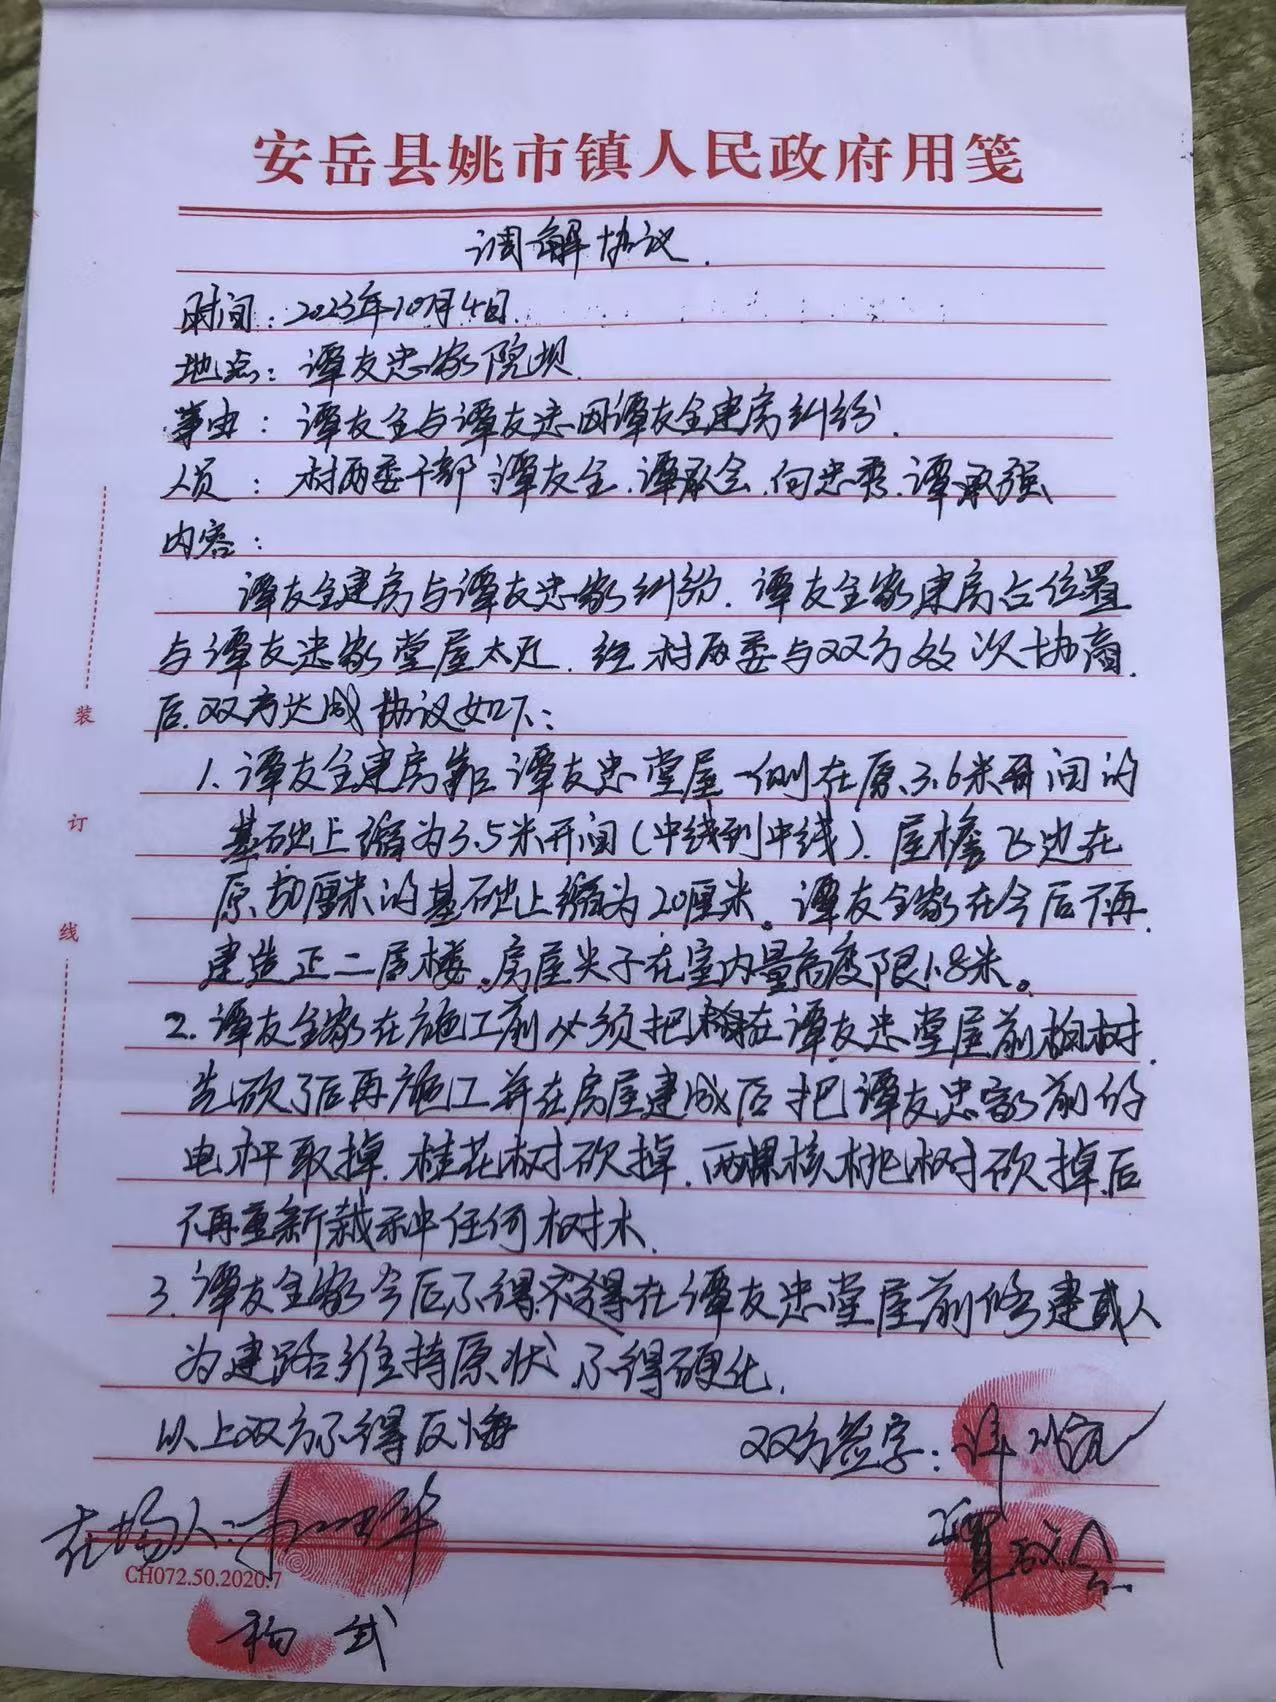 安岳县姚市镇人民政府用笺
调解协议.
时间：2023年10月4日.
地点：谭友忠家院坝.
事由：谭友全与谭友忠因谭友全建房纠纷.
人员：村两委干部 谭友全.谭承会.向忠秀.谭承强
内容：
谭友全建房与谭友忠家纠纷.谭友全家建房占位置
与谭友忠家堂屋太近.经村两委与双方数次协商.
后.双方达成协议如下：
1.谭友全建房靠 谭友忠堂屋一侧在原3.6米开间的
基础上缩为3.5米开间(中线到中线).屋檐飞边在
原 厘米的基础上缩为20厘米。谭友全家在今后不再
建造正二层楼。房屋尖子在室内量高度限1.8米。
2.谭友全家在施工前必须把 在谭友忠堂屋前 树.
先砍了后再施工并在房屋建成后把谭友忠家前的
电杆取掉.桂花树砍掉.两棵核桃树砍掉后
不再重新栽种任何树木.
3.谭友全家今后不得 在谭友忠堂屋前修建或人
为建路维持原状.不得硬化.
以上双方不得反悔
双方签字：谭
谭 会
在场人：
杨武
CH072.50.2020.7
装
订
线